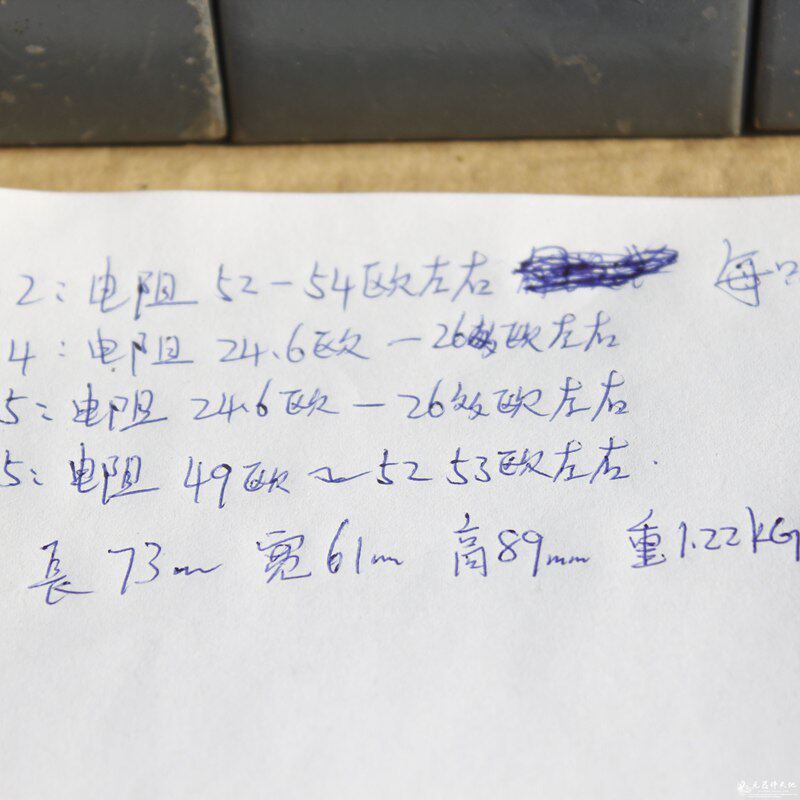 2：电阻 52-54欧左右 每只
4：电阻 24.6欧 — 26欧左右
5：电阻 24.6欧 — 26欧左右
5：电阻 49欧 ~ 52 53欧左右.
長73m 宽61m 高89mm 重1.22kG